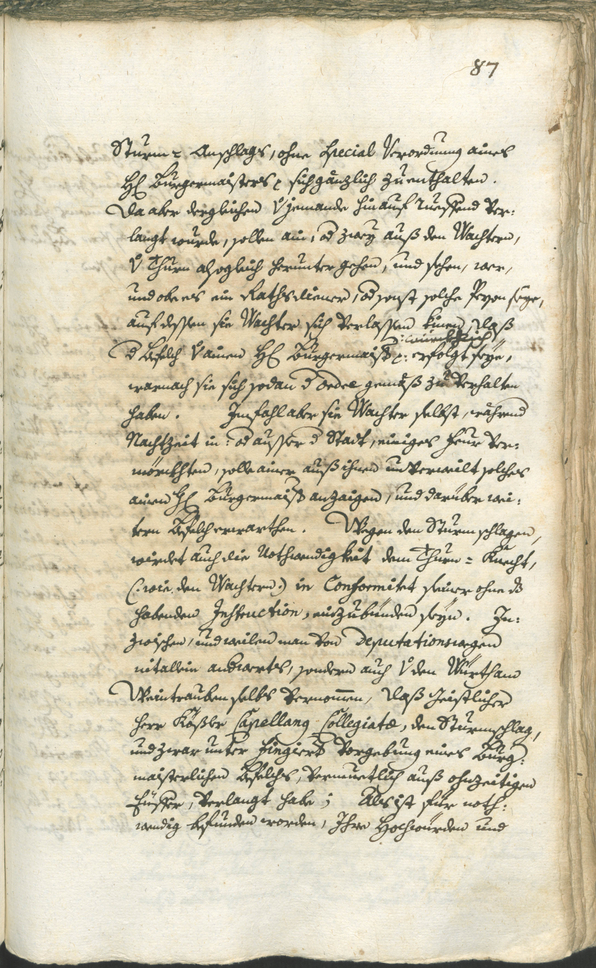 87
Sturm= Anschlags, ohne special Verordnung aines
H: Burgermaisters p: sich gänzlich zuenthalten.
Da aber dergleichen V jemande hinauf rueffend Ver:
langt wurde, sollen ain, od zway auß den Wachtern,
V Thurn alsogleich herunter gehen, und sehen, wer,
und ob es ein Rathsdiener, od sonst solche Person seye,
auf dessen sie Wachter sich verlassen können, daß
würcklich
d befelch V ainem H: Burgermaist: p: erfolgt seye,
warnach sie sich sodan d ordre gemäß zu Verhalten
haben. Im fahl aber sie Wachter selbst, während
Nachtzeit in: od ausser d Stadt, einiges feur Ver:
mörckhten, solle ainer auß ihnen unverweilt solches
ainem H: Burgermaist: anzaigen, und darüber wei:
tern befelch erwarthen. Wegen den Sturmschlagen,
würdet auch die Nothwendigkeit dem Thurn= Knecht,
(: wie den Wachtern:) in Conformitet seiner ohne ds
habenden Instruction, einzubünden seyn. In:
zwischen, und weilen man Von Deputationswegen
nit allein anderwerts, sondern auch V den Würth am
Weintrauben selbs Vernommen, daß Geistlicher
Herr Käßler Capellang Collegiatæ, den Sturmschlag,
und zwar unter fingiert Vorgebung eines Burg:
maisterlichen befelchs, Vermuetlich auß ohnzeitigen
Eüffer, Verlangt habe; Als ist für noth:
wendig befunden worden, Ihre Hochwürden und